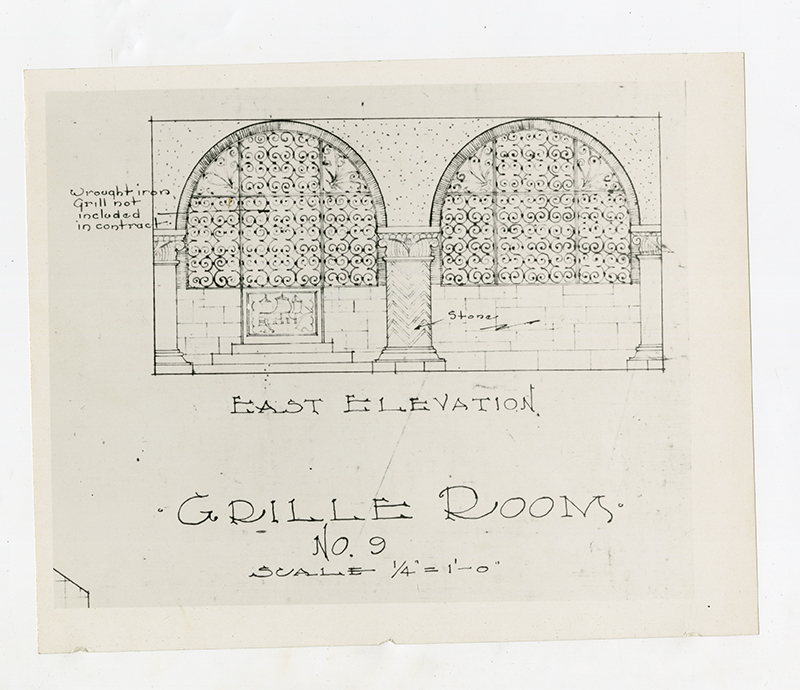 Wrought iron
Grill not
included
in contract
Stone
EAST ELEVATION.
·GRILLE ROOM·
NO. 9
SCALE 1/4" = 1'-0"